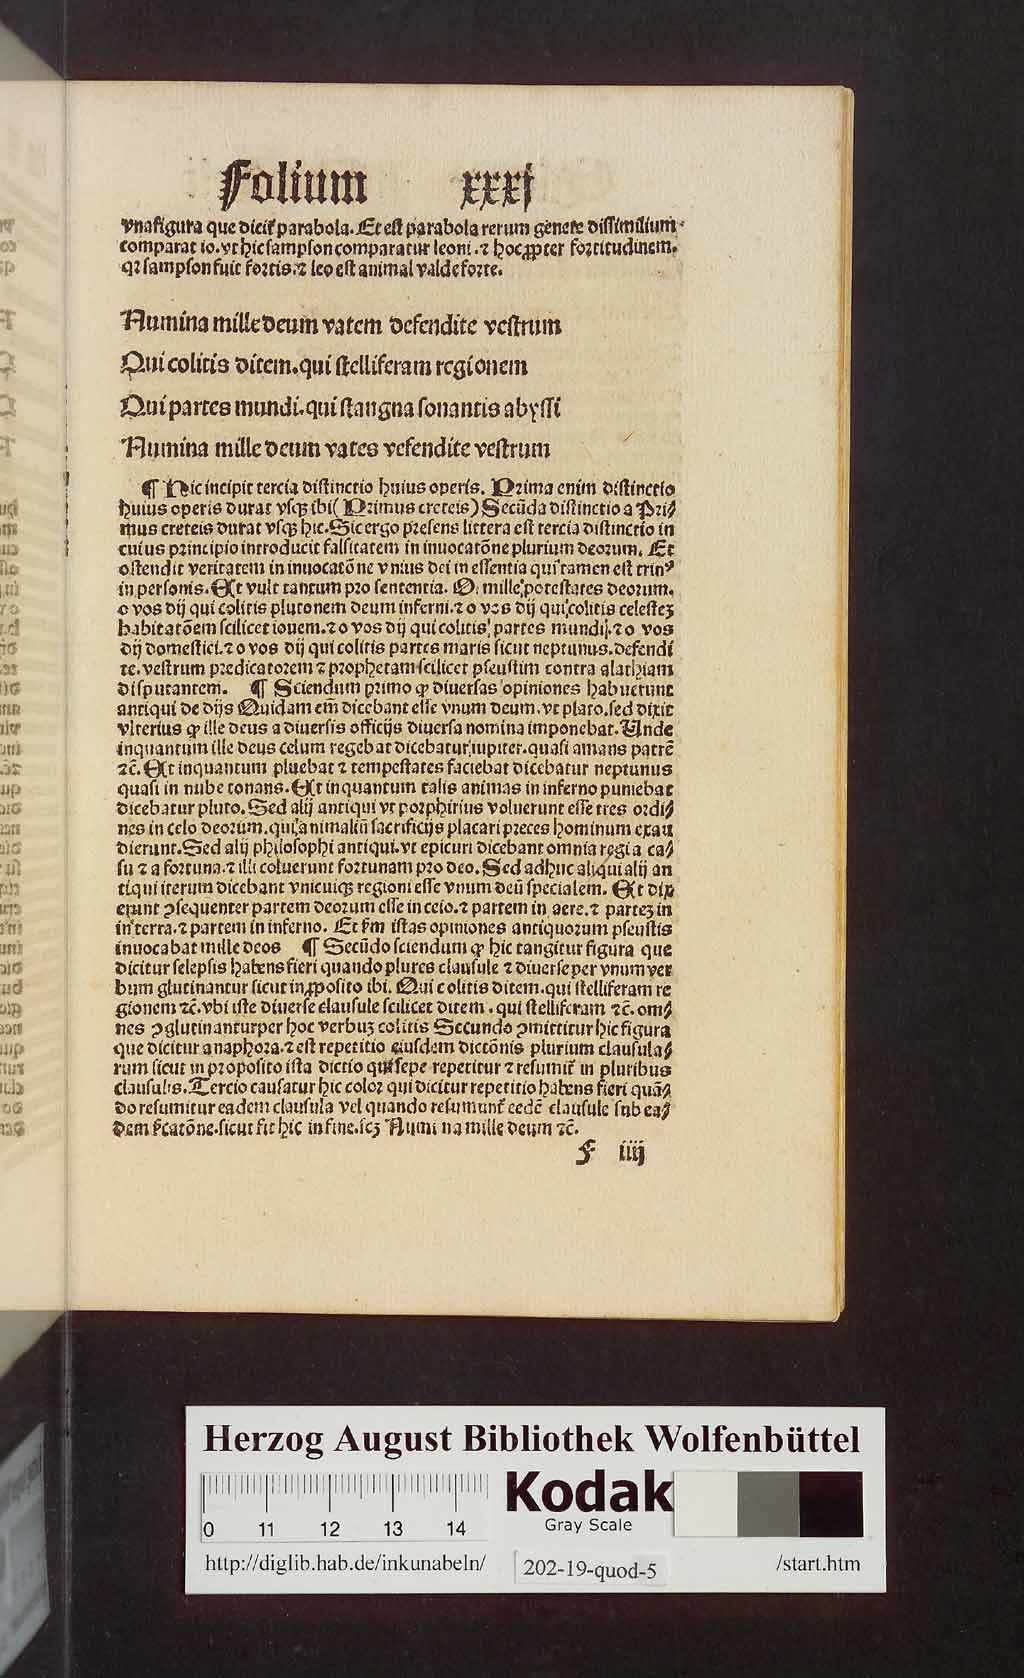 Folium xxxj
vna figura que dicit᷑ parabola. Et est parabola rerum genere dissimilium
comparatio. vt hic sampson comparatur leoni. ⁊ hoc ꝓpter fortitudinem.
qꝛ sampson fuit fortis. ⁊ leo est animal valde forte.
Numina mille deum vatem defendite vestrum
Qui colitis ditem. qui stelliferam regionem
Qui partes mundi. qui stangna sonantis abyssi
Numina mille deum vates vefendite vestrum
¶ Hic incipit tercia distinctio huius operis. Prima enim distinctio
huius operis durat vsqꝫ ibi( Primus creteis) Secūda distinctio a Pri⸗
mus creteis durat vsqꝫ hic. Sic ergo presens littera est tercia distinctio in
cuius principio introducit falsitatem in inuocatōne plurium deorum. Et
ostendit veritatem in inuocatōne vnius dei in essentia qui tamen est trinꝰ
in personis. Et vult tantum pro sententia. O mille potestates deorum.
o vos dij qui colitis plutonem deum inferni. ⁊ o vos dij qui colitis celesteꝫ
habitatōem scilicet iouem. ⁊ o vos dij qui colitis partes mundi. ⁊ o vos
dij domestici. ⁊ o vos dij qui colitis partes maris sicut neptunus. defendi
te. vestrum predicatorem ⁊ prophetam scilicet pseustim contra alathiam
disputantem. ¶ Sciendum primo ꝙ diuersas opiniones habuerunt
antiqui de dijs Quidam em̄ dicebant esse vnum deum. vt plato. sed dixit
vlterius ꝙ ille deus a diuersis officijs diuersa nomina imponebat. Unde
inquantum ille deus celum regebat dicebatur iupiter. quasi amans patrē
⁊c̄. Et inquantum pluebat ⁊ tempestates faciebat dicebatur neptunus
quasi in nube tonans. Et inquantum talis animas in inferno puniebat
dicebatur pluto. Sed alij antiqui vt porphirius voluerunt esse tres ordi⸗
nes in celo deorum. qui animaliū sacrificijs placari preces hominum exau
dierunt. Sed alij philosophi antiqui. vt epicuri dicebant omnia regi a ca⸗
su ⁊ a fortuna. ⁊ illi coluerunt fortunam pro deo. Sed adhuc aliqui alij an
tiqui iterum dicebant vnicuiqꝫ regioni esse vnum deū specialem. Et dix
erunt ꝯsequenter partem deorum esse in celo. ⁊ partem in aere. ⁊ parteꝫ in
in terra. ⁊ partem in inferno. Et f̄m istas opiniones antiquorum pseustis
inuocabat mille deos ¶ Secūdo sciendum ꝙ hic tangitur figura que
dicitur selepsis habens fieri quando plures clausule ⁊ diuerse per vnum ver
bum glutinantur sicut in ꝓposito ibi. Qui colitis ditem. qui stelliferam re
gionem ⁊c̄. vbi iste diuerse clausule scilicet ditem. qui stelliferam ⁊c̄. om⸗
nes ꝯglutinantur per hoc verbuꝫ colitis Secundo ꝯmittitur hic figura
que dicitur anaphora. ⁊ est repetitio eiusdem dictōnis plurium clausula⸗
rum sicut in proposito ista dictio qui sepe repetitur ⁊ resumit᷑ in pluribus
clausulis. Tercio causatur hic color qui dicitur repetitio habens fieri quā⸗
do resumitur eadem clausula vel quando resumunt᷑ eedē clausule sub ea⸗
dem . sicut fit hic in fine. scꝫ Numina mille deum ⁊c̄.
f iiij
Herzog August Bibliothek Wolfenbüttel
0 11 12 13 14
Kodak
Gray Scale
http://diglib.hab.de/inkunabeln/ 202-19-quod-5 /start.htm